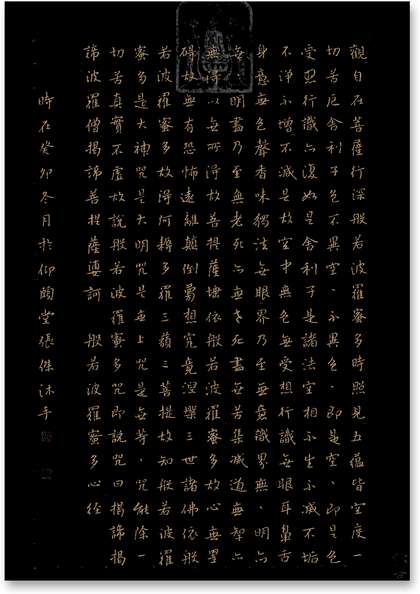 觀自在菩薩行深般若波羅蜜多時照見五蘊皆空度一
切苦厄舍利子色不異空、不異色、即是空、即是色
受想行識亦復如是舍利子是諸法空相不生不滅不垢
不淨不增不減是故空中無色無受想行識無眼耳鼻舌
身意無色聲香味觸法無眼界乃至無意識界無、明亦
無、明盡乃至無老死亦無老死盡無苦集滅道無智亦
無得以無所得故菩提薩埵依般若波羅蜜多故心無罣
礙故無有恐怖遠離顛倒夢想究竟涅槃三世諸佛依般
若波羅蜜多故得阿耨多羅三藐三菩提故知般若波羅
蜜多是大神咒是大明咒是無上咒是無等、咒能除一
切苦真實不虛故說般若波羅蜜多咒即說咒曰揭諦揭
諦波羅僧揭諦菩提薩婆訶 般若波羅蜜多心經
時在癸卯冬月於仰頤堂張傑沐手